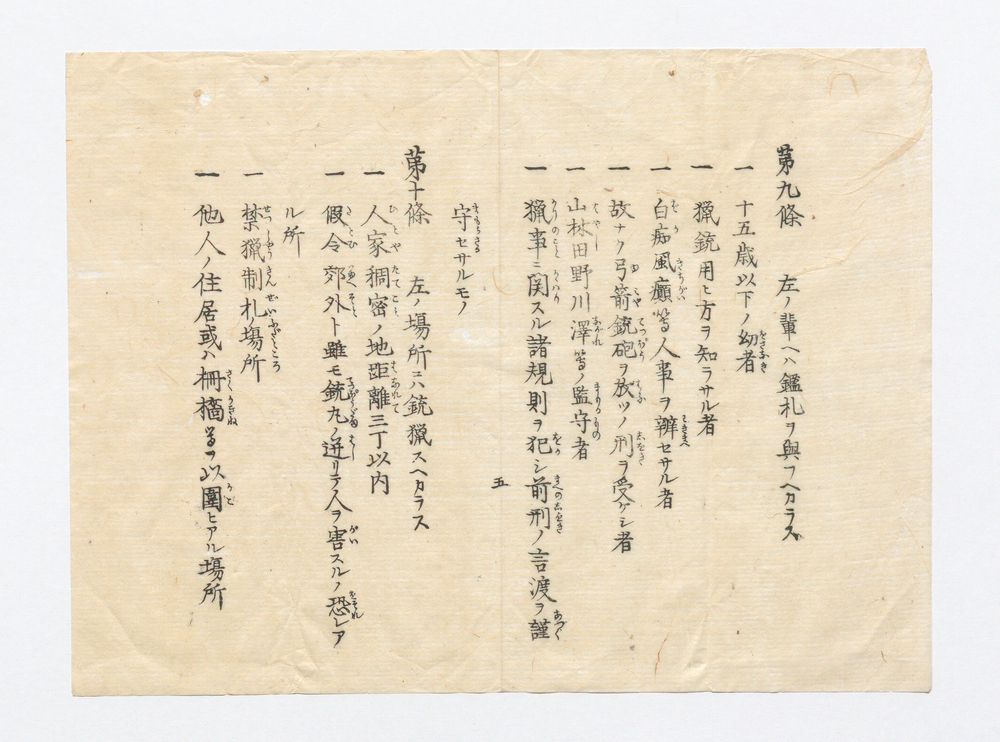 第九條　左ノ輩ヘハ鑑札ヲ與フヘカラス
一　十五歳以下ノ幼者
一　猟銃用ヒ方ヲ知ラサル者
一　白痴風癲等人事ヲ辨セサル者
一　故ナク弓箭銃砲ヲ放ツノ刑ヲ受ケシ者
一　山林田野川澤等ノ監守者
一　猟事ニ関スル諸規則ヲ犯シ前刑ノ言渡ヲ謹
五
守セサルモノ
第十條　左ノ塲所ニハ銃猟スヘカラス
一　人家稠密ノ地距離三丁以内
一　假令郊外ト雖モ銃丸ノ迸リテ人ヲ害スルノ恐レア
ル所
一　禁猟制札ノ塲所
一　他人ノ住居或ハ柵墻等ヲ以圍ヒアル塲所